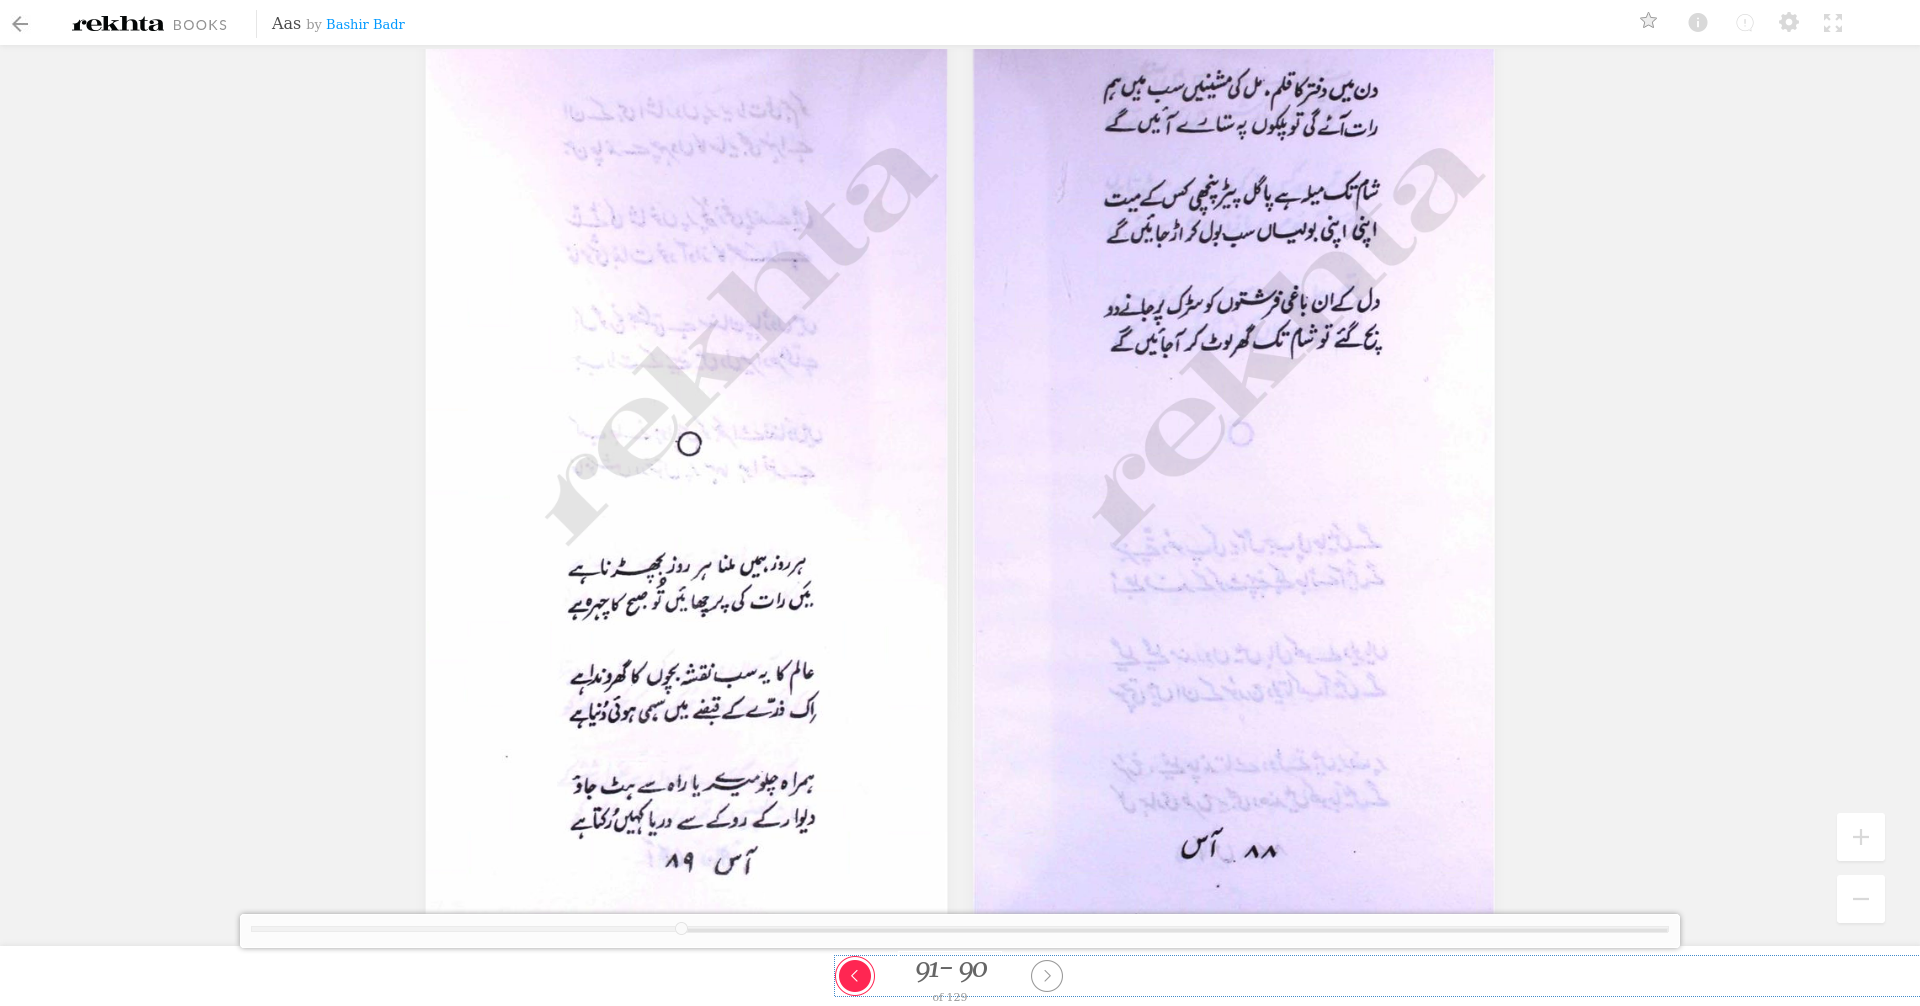 rekhta BOOKS Aas by Bashir Badr
دن میں دفتر کا قلم، مل کی مشینیں سب ہیں ہم
رات آئے گی تو پلکوں پہ ستارے آئیں گے
شام تک میلہ ہے پاگل پیڑ پنچھی کس کے میت
اپنی اپنی بولیاں سب بول کر اڑ جائیں گے
دل کے ان باغی فرشتوں کو سڑک پر جانے دو
بچ گئے تو شام تک گھر لوٹ کر آ جائیں گے
۸۸ آس
rekhta
ہر روز ہمیں ملنا ہر روز بچھڑنا ہے
میں رات کی پرچھائیں تُو صبح کا چہرہ ہے
عالم کا یہ سب نقشہ بچوں کا گھروندا ہے
اِک ذرّے کے قبضے میں سہمی ہوئی دُنیا ہے
ہمراہ چلو میرے یا راہ سے ہٹ جاؤ
دیوار کے روکے سے دریا کہیں رُکتا ہے
آس ۸۹
rekhta
91- 90
of 129